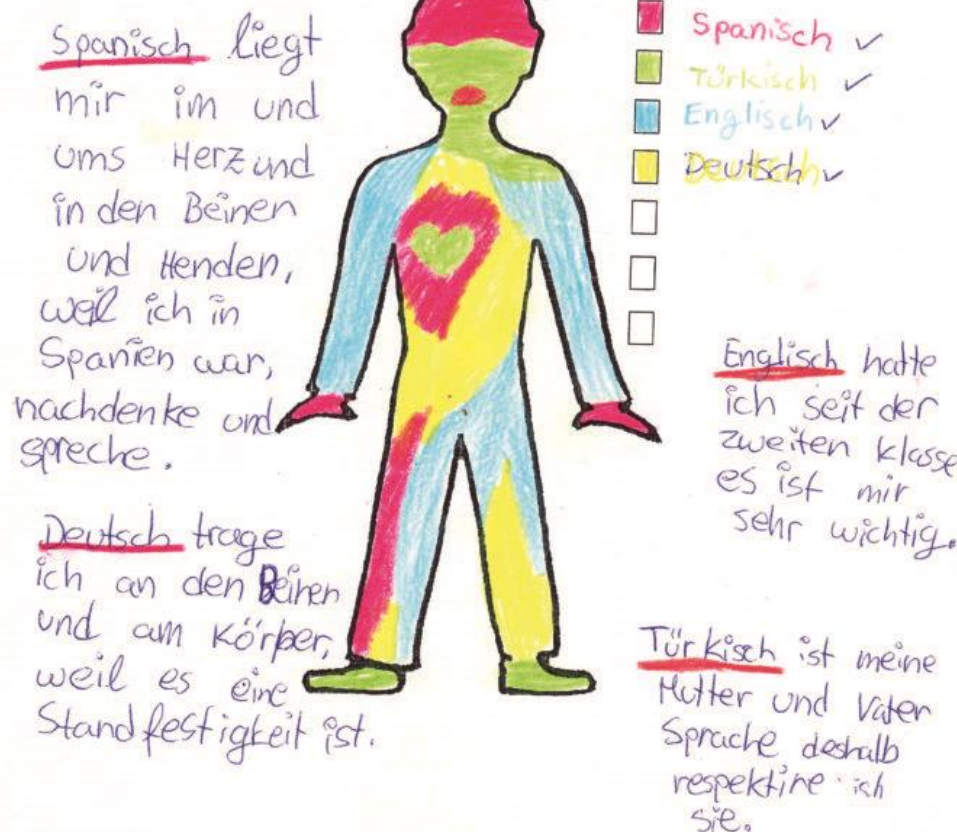 Spanisch liegt
mir im und
ums Herz und
in den Beinen
und Henden,
weil ich in
Spanien war,
nachdenke und
spreche.
Deutsch trage
ich an den Beinen
und am Körper,
weil es eine
Standfestigkeit ist.
Spanisch ✓
Türkisch ✓
Englisch ✓
Deutsch ✓
Englisch hatte
ich seit der
zweiten Klasse
es ist mir
sehr wichtig.
Türkisch ist meine
Mutter und Vater
Sprache deshalb
respektire ich
sie.